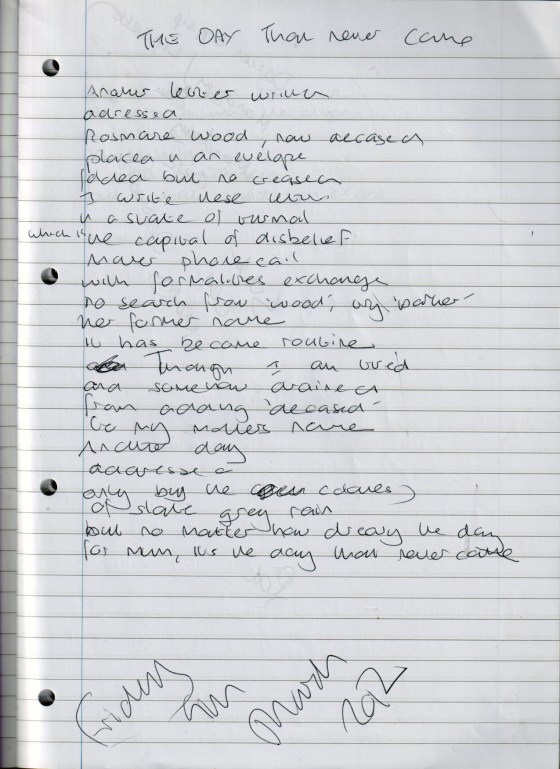 THE DAY That never Came
Another letter written
adressed
Rosmarie Wood, now deceased
placed in an envelope
folded but no creased
I write these
in a state of turmoil
which is the capital of disbelief
Another phone call
with formalities exchange
no search from 'wood', try 'barker'
her former name
it has become routine
Though I am tired
and somehow drained
from adding 'deceased'
to my mothers name
Another day
addressed
only by the colours
of slate grey rain
but no matter how dreary the day
for Mum, its the day that never came
Friday
March